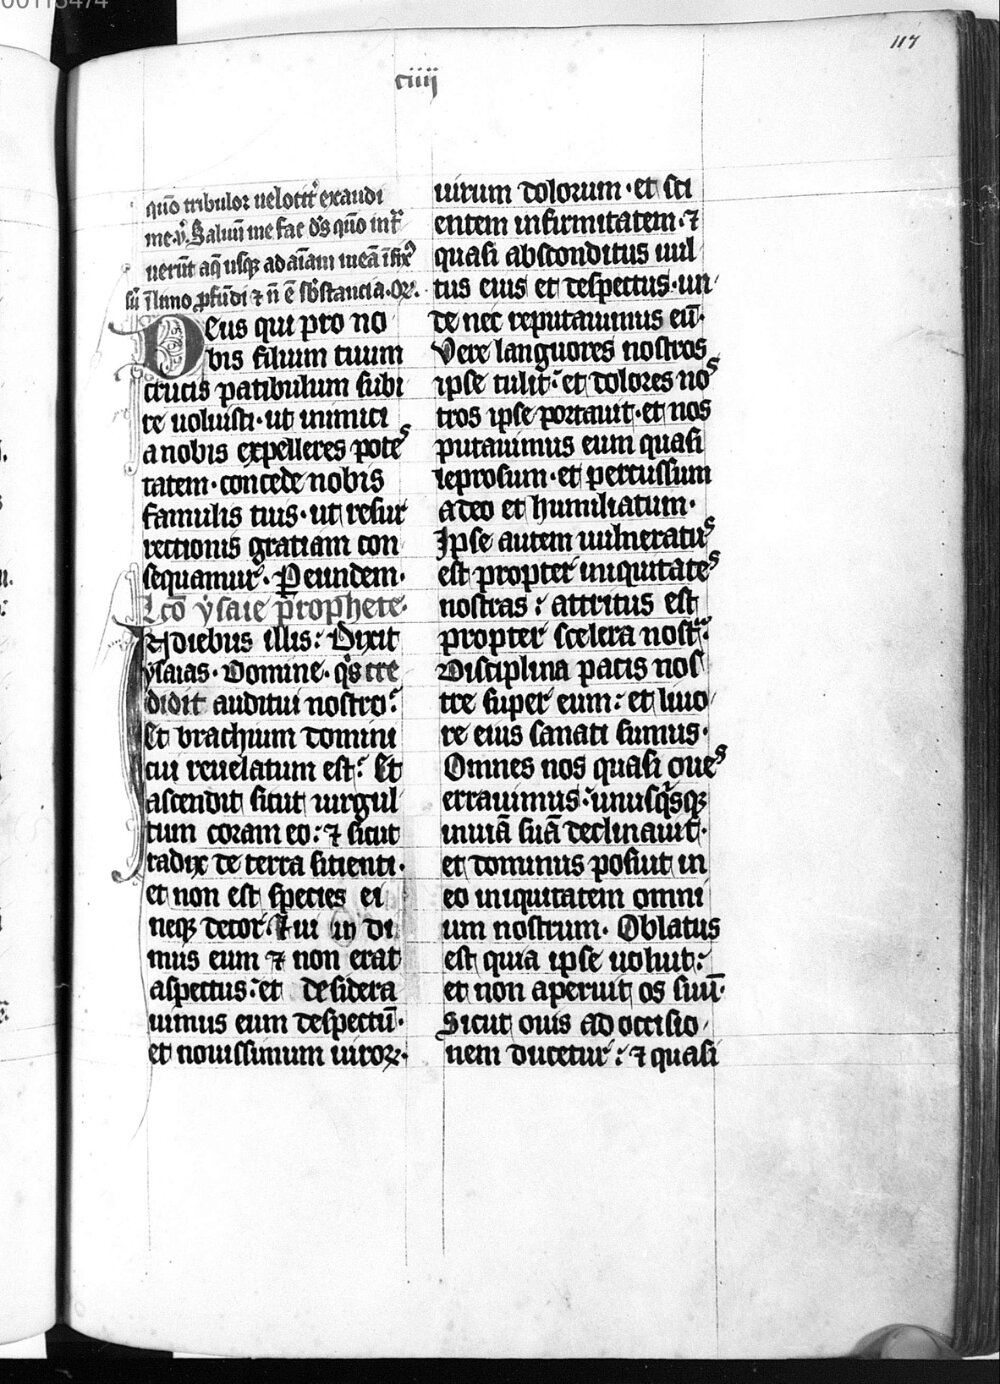 00113474
117
ciiij
quō tribulor uelocit᷑ exaudi
me. v̉. Saluū me fac dꝰs quō int᷑
uerūt aq̄ usqꝫ ad aīam meā īfix᷑
sū ī limo ꝓfūdi ⁊ n̄ ē sb̄stancia. Or̄.
Deus qui pro no
bis filium tuum
crucis patibulum subi
re uoluisti · ut inimici
a nobis expelleres potes
tatem · concede nobis
famulis tuis · ut resur
rectionis gratiam con
sequamur · P eundem ·
Lc̄o ysaie prophete ·
In diebus illis : Dixit
ysaias · Domine · qͥs cre
didit auditui nostro :
Et brachium domini
cui reuelatum est : Et
ascendit sicut uirgul
tum coram eo : ⁊ sicut
radix de terra sitienti ·
et non est species ei
neqꝫ decor · Et ui di
mus eum ⁊ non erat
aspectus : et desidera
uimus eum despectū ·
et nouissimum uiroꝝ ·
uirum dolorum · et sci
entem infirmitatem · ⁊
quasi absconditus uul
tus eius et despectus · un
de nec reputauimus eū ·
Vere languores nostros
ipse tulit : et dolores nos
tros ipse portauit · et nos
putauimus eum quasi
leprosum · et percussum
a deo et humiliatum ·
Ipse autem uulneratus
est propter iniquitates
nostras : attritus est
propter scelera nostra :
Disciplina pacis nos
tre super eum : et liuo
re eius sanati sumus ·
Omnes nos quasi oues
errauimus : unusqͥsqꝫ
in uiā suā declinauit ·
et dominus posuit in
eo iniquitatem omni
um nostrum · Oblatus
est quia ipse uoluit :
et non aperuit os suū ·
Sicut ouis ad occisio
nem ducetur : ⁊ quasi